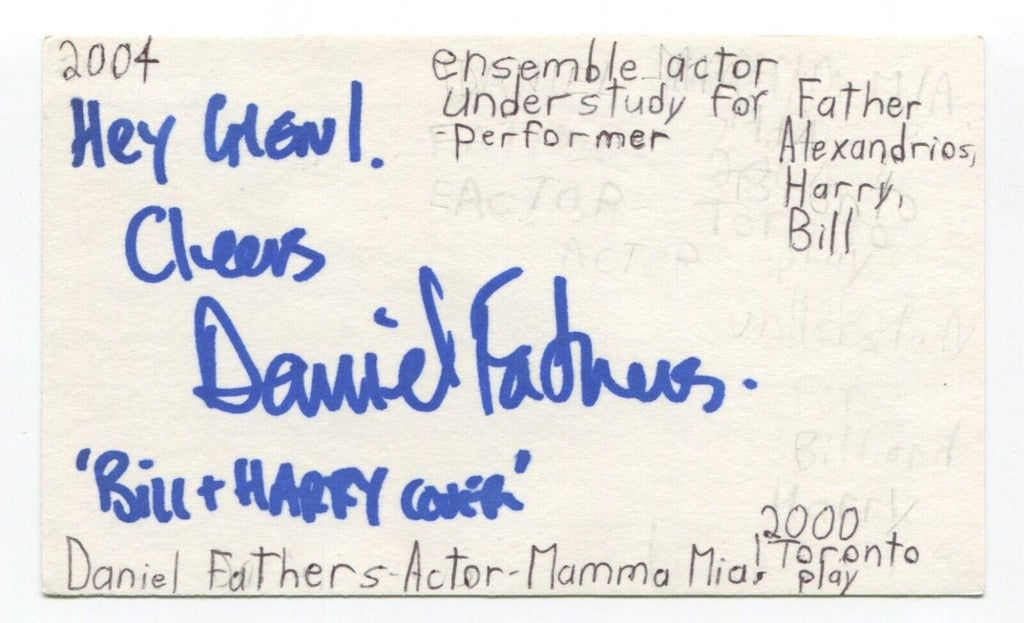 2004
ensemble actor
understudy for Father
Alexandrios,
Harry,
Bill
-performer
Hey GLENN!.
Cheers
Daniel Fathers.
"Bill + HARRY COVER"
Daniel Fathers-Actor-Mamma Mia!
2000
Toronto
play